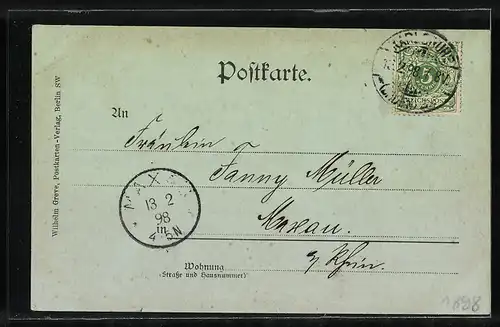 Postkarte.
An
Fräulein
Fanny Müller
Maxau.
a/Rhein.
Wohnung
(Straße und Hausnummer)
Wilhelm Greve, Postkarten-Verlag, Berlin SW
MAXAU
13 2
98
4-5N
KARLSRUHE
5
1898